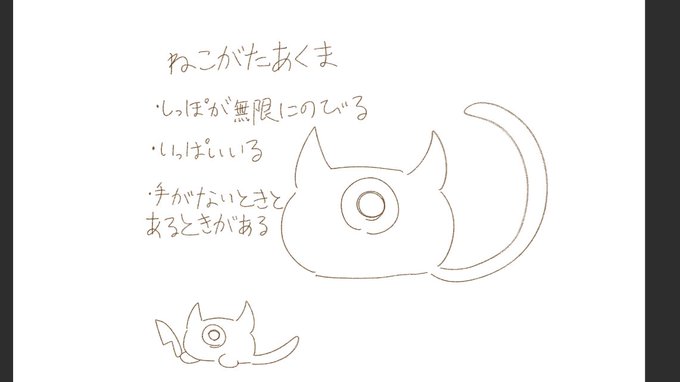 ねこがたあくま
・しっぽが無限にのびる
・いっぱいいる
・手がないときと
あるときがある